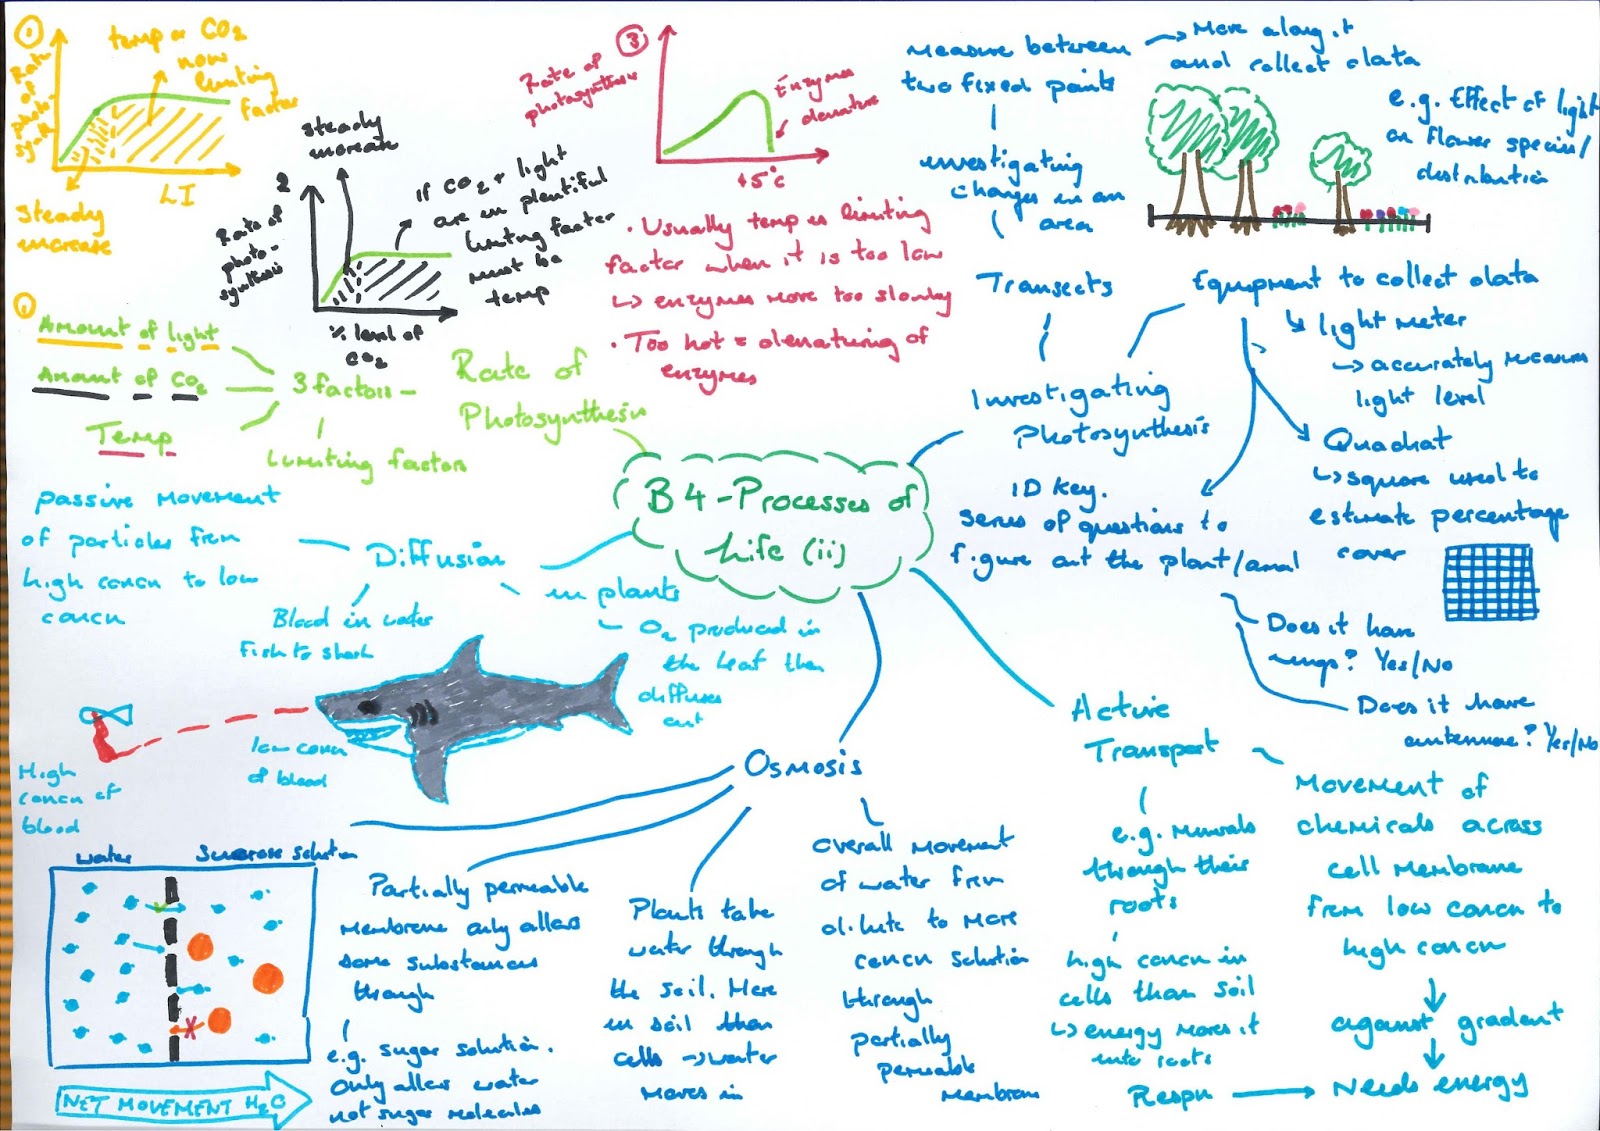 B4 - Processes of
Life (ii)
Rate of
Photosynthesis
3 factors
Limiting factors
1
Amount of light
Amount of CO2
Temp
1
Rate
of
photo-
synth
temp or CO2
now
limiting
factor
LI
Steady
increase
2
Rate of
photo-
synthesis
steady
increase
if CO2 + light
are in plentiful
limiting factor
must be
temp
% level of
CO2
3
Rate of
photosynthesis
Enzymes
denature
45°C
• Usually temp is limiting
factor when it is too low
↳ enzymes move too slowly
• Too hot = denaturing of
enzymes
Investigating
Photosynthesis
Transects
investigating
changes in an
area
Measure between
two fixed points
→ Move along it
and collect data
e.g. Effect of light
on flower species/
distribution
Equipment to collect data
light meter
↳ accurately measure
light level
Quadrat
↳ square used to
estimate percentage
cover
ID key.
Series of questions to
figure out the plant/
Does it have
wings? Yes/No
Does it have
antennae? Yes/No
Diffusion
passive movement
of particles from
high concn to low
concn
Blood in water
Fish to shark
High
concn of
blood
low concn
of blood
in plants
O2 produced in
the leaf then
diffuses
out
Osmosis
water
Sucrose solution
NET MOVEMENT H2O
Partially permeable
membrane only allows
some substances
through
e.g. sugar solution.
Only allows water
not sugar molecules
Plants take
water through
the soil. More
in soil than
cells → water
moves in
Overall movement
of water from
dilute to more
concn solution
through
partially
permeable
membrane
Active
Transport
e.g. Minerals
through their
roots
high concn in
cells than soil
↳ energy moves it
into roots
Movement of
chemicals across
cell membrane
from low concn to
high concn
against gradient
Respn → Needs energy